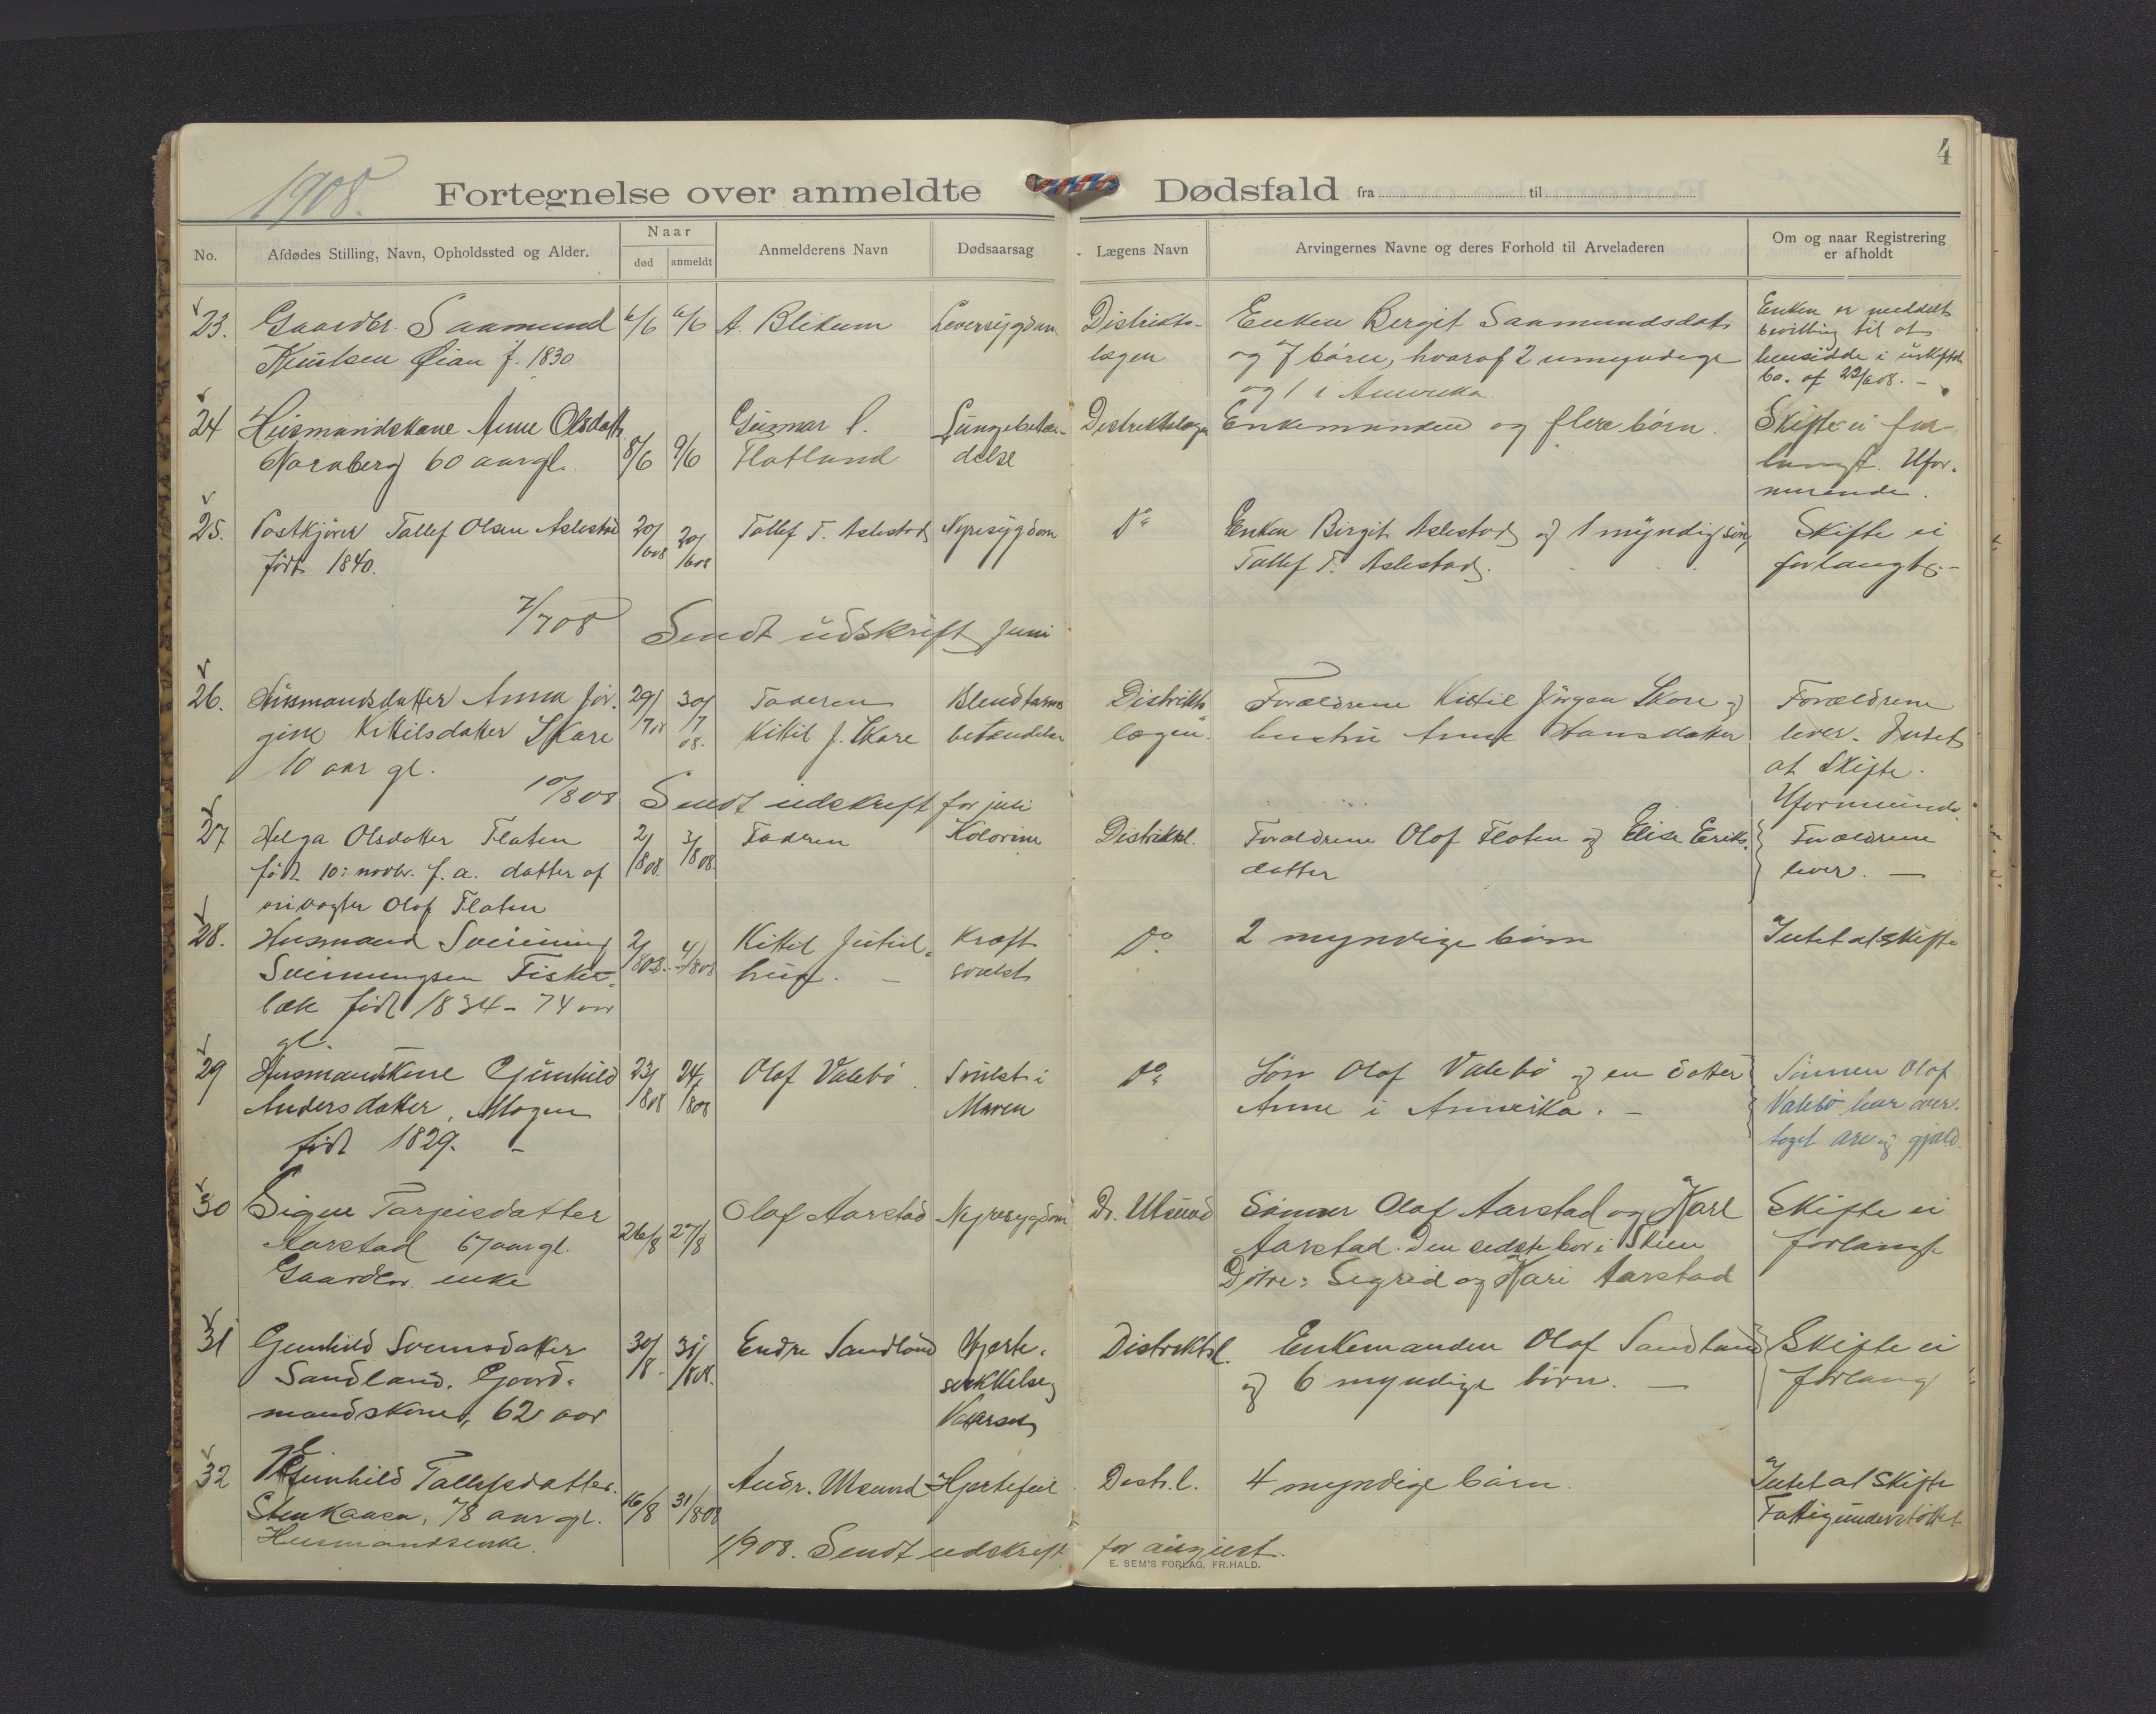 1908.
4
Fortegnelse over anmeldte Dødsfald fra til
No.
Afdødes Stilling, Navn, Opholdssted og Alder.
Naar
død
anmeldt
Anmelderens Navn
Dødsaarsag
Lægens Navn
Arvingernes Navne og deres Forhold til Arveladeren
Om og naar Registrering
er afholdt
23.
Gaardbr. Saamund
Knutsen Øian f. 1830
6/6
6/6
A. Blikum
Leversygdom
Distrikts-
lægen
Enken Bergit Saamundsdat
og 7 børn, hvoraf 2 umyndige
og 1 i Amerika
Enken er meddelt
bevilling til at
hensidde i uskiftet
bo. af 22/6 08. -
24
Husmandskone Anne Olsdatt
Nornberg 60 aar gl.
8/6
9/6
Gunnar
Flatland
Lungebetæn-
delse
Distriktslæge
Enkemanden og flere børn.
Skifte ei for-
langt. Ufor-
muende.
25.
Postkjører Tallef Olsen Aslestad
født 1840.
20/6 08
20/6 08
Tallef T. Aslestad
Nyresygdom
Do
Enken Birgit Aslestad og 1 myndig søn,
Tallef T. Aslestad.
Skifte ei
forlangt. -
7/7 08 Sendt udskrift Juni
26.
Husmandsdatter Anna Jør-
gine Kittilsdatter Skare
10 aar gl.
29/7 08
30/7 08.
Faderen
Kittil J. Skare
Blindtarms
betændelse
Distrikts
lægen.
Forældrene Kittil Jørgen Skare og
hustru Anne Hansdatter
Forældrene
lever. Intet
at Skifte.
Uformuende
10/8 08 Sendt udskrift for juli
27
Helga Olsdatter Flaten
født 10: novbr. f. a. datter af
Olof Flaten
2/8 08.
3/8 08.
Fadren
Kolerine
Distriktsl.
Forældrene Olof Flaten og Elise Eriks-
datter
Forældrene
lever. -
28.
Husmand Sveinung
Sveinungsen Fiske-
bæk født 1834 - 74 aar
gl.
2/8 08.
4/8 08
Kittil
Kræft
svulst
Do
2 myndige børn
Intet at skifte
29
Husmandskone Gunhild
Andersdatter, Mogen
født 1829. -
23/8 08
24/8 08
Olof Valebø.
Svulst i
Maven
Do
Søn Olof Valebø og en datter
Anne i Amerika. -
Sønnen Olof
Valebø har over-
taget arv og gjæld.
30
Signe Tarjeisdatter
Aarstad 67 aar gl.
Gaardbr. enke
26/8
27/8
Olaf Aarstad
Nyresygdom
Dr. Utsund
Sønner Olaf Aarstad og Karl
Aarstad. Den sidste bor i Skien
Døtre: Sigrid og Kari Aarstad
Skifte ei
forlangt
31
Gunhild Sveinsdatter
Sandland. Gaard-
mandskone, 62 aar
30/8.
31/8 08.
Endre Sandland
Hjerte-
Vattersot
Distriktsl.
Enkemanden Olof Sandland
og 6 myndige børn. -
Skifte ei
forlangt
32
Gunhild Tallefsdatter.
Stenkaasa, 78 aar gl.
Husmandsenke.
16/8
31/8 08
Andr. Utsund
Hjertefeil
Distr. l.
4 myndige børn.
Intet at Skifte
Fattigunderstøttet
1/9 08. Sendt udskrift for august.
E. SEM'S FORLAG, FR.HALD.